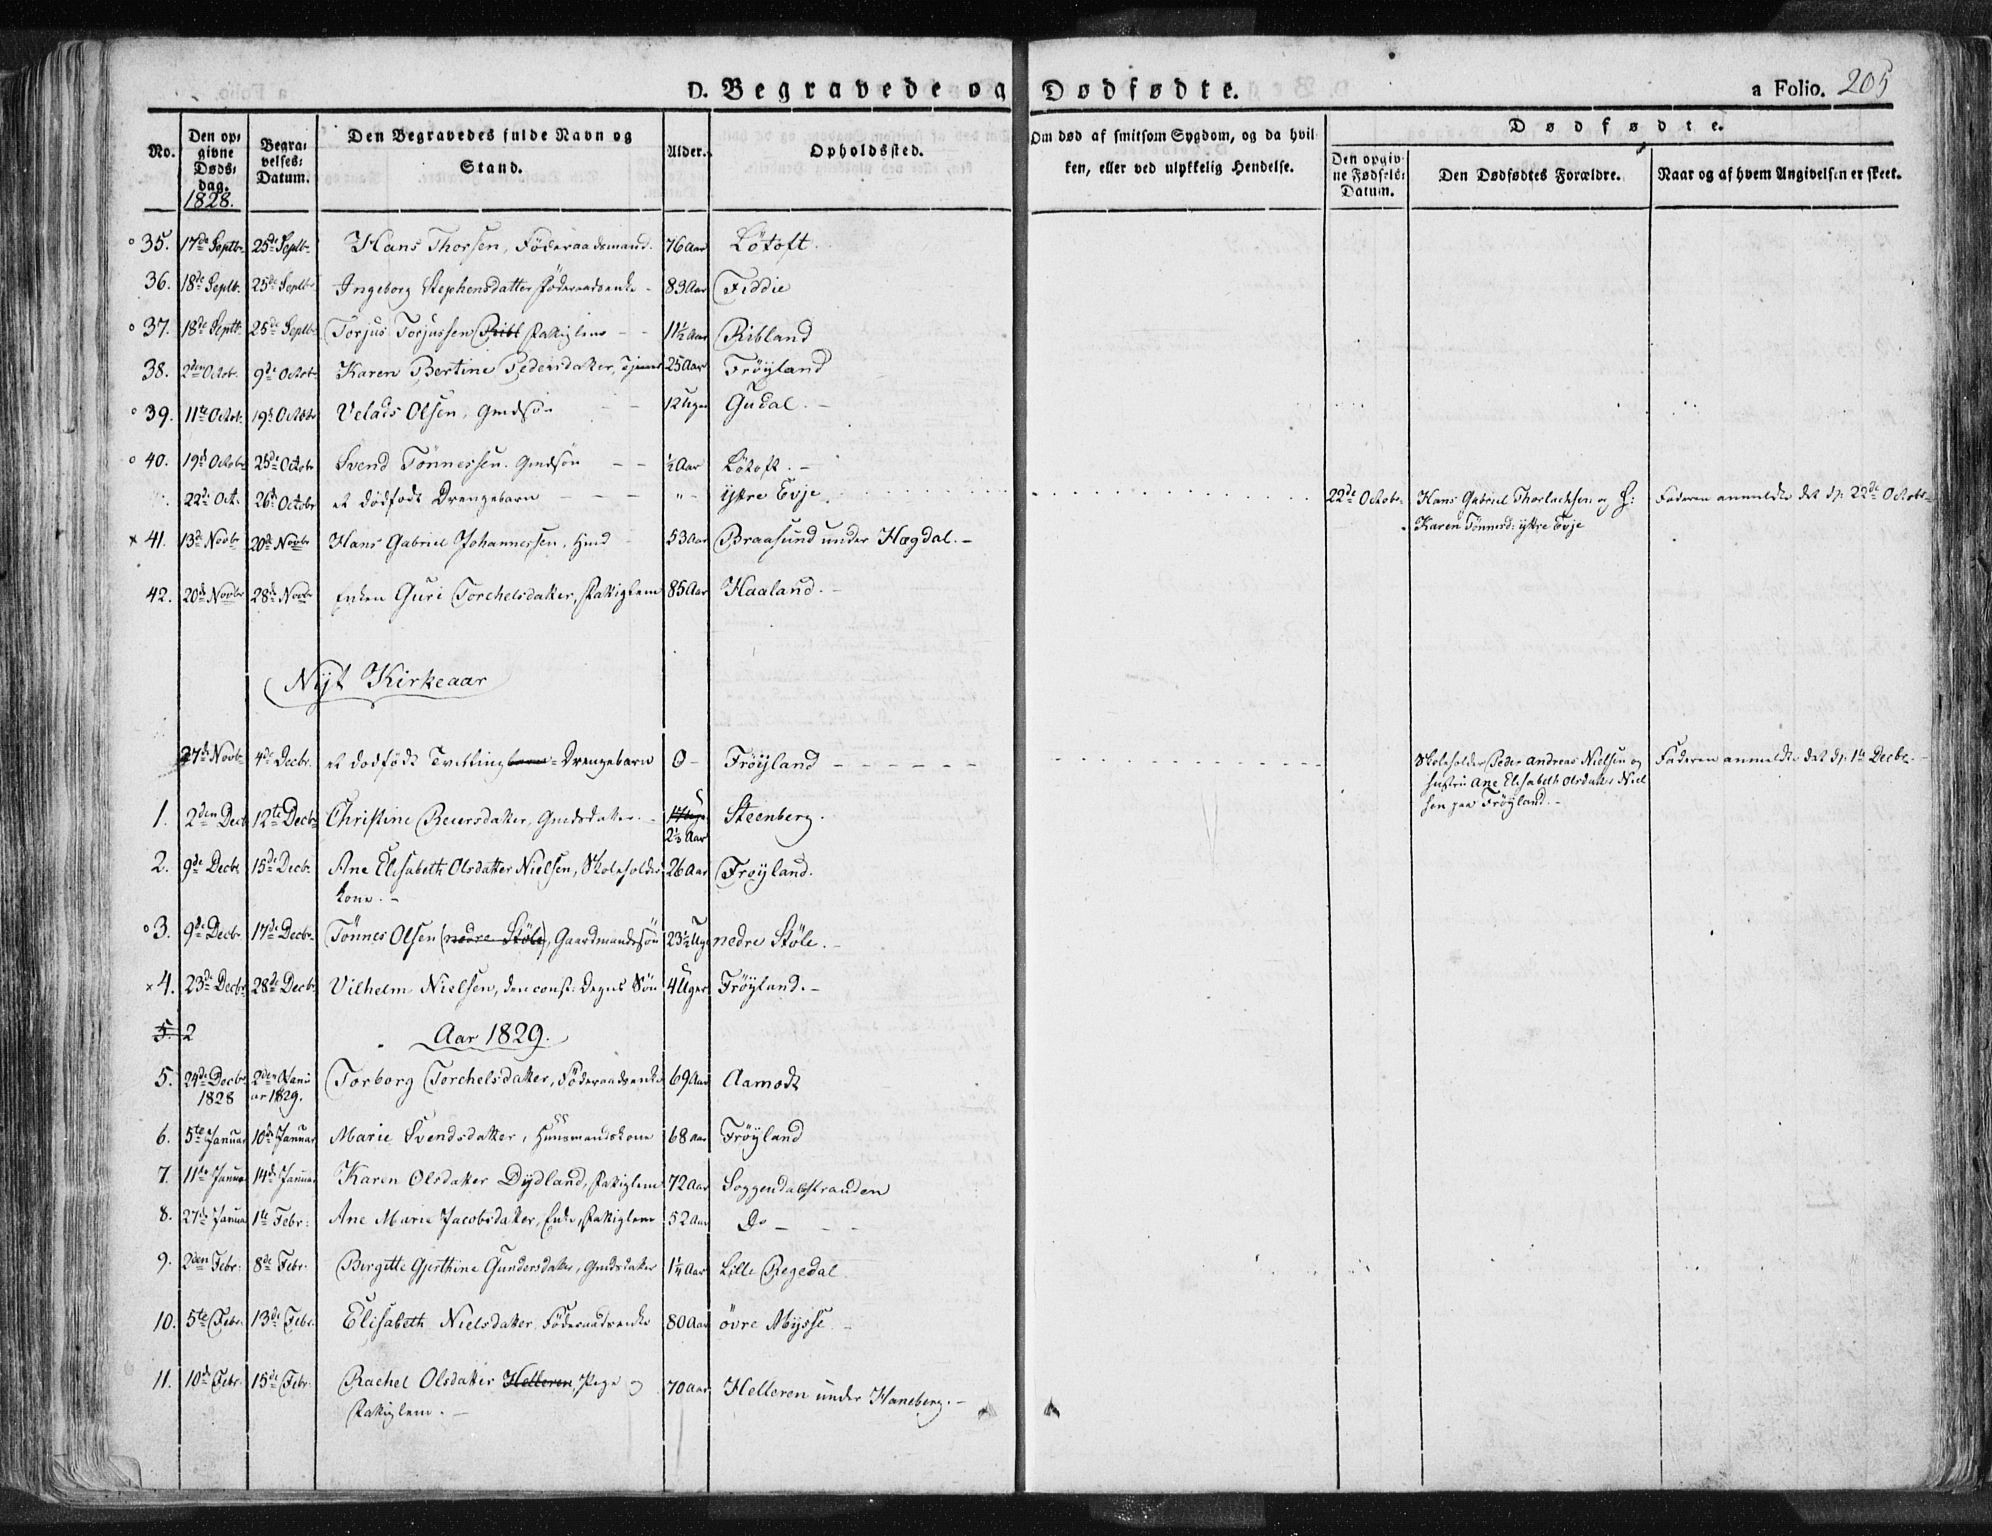 D. Begravede og Dødfødte.
a Folio. 205
No.
Den opgivne Døds-dag.
1828.
Begravelses-Datum.
Den Begravedes fulde Navn og Stand.
Alder.
Opholdssted.
Om død af smitsom Sygdom, og da hvilken, eller ved ulykkelig Hendelse.
Dødfødte.
Den opgivne Fødsels-Datum.
Den Dødfødtes Forældre.
Naar og af hvem Angivelsen er skeet.
35. 17de Septb. 25de Septb. Hans Thorsen, Föderaadsmand. 76 Aar Løtoft.
36. 18de Septb. 25de Septb. Ingeborg Stephensdatter Föderaadsenke - 83 Aar Fiddie
37. 18de Septb. 25de Septb. Torjus Torjussen Ribl Fattiglem - - 11½ Aar Ribland
38. 2den Octob. 9de Octob. Karen Bertine Pedersdatter, 25 Aar Fröyland
39. 11te Octob. 19de Octobr Velads Olsen, Gmdsön - - 12 Uger Gudal. -
40. 19de Octobr 25de Octobr Svend Tönnessen. Gmdsön - - ½ Aar Løtoft. -
22de Oct. 26de Octobr et dödfödt Drengebarn - - - " - ystre Evje 22de Octobr. Hans Gabriel Thorlachsen og H: Faderen anmeldte det d: 22de Octobr.
Karen Tönnesd: ystre Evje
41. 13de Novbr 20de Novbr Hans Gabriel Johannessen, Hmd - 53 Aar Braasund under Hægdal. -
42. 20de Novbr 28de Novbr Enken Guri Torchelsdatter, Fattiglem 85 Aar Haaland. -
Nyt Kirkeaar
27de Novb. 4de Decbr. et dödfödt Tvilling - Drengebarn 0 - Fröyland Skoleholder Peder Andreas Nielsen og Faderen anmeldte det d: 1te Decbr. -
hustru Ane Elisabeth Olsdatter Niel-
sen paa Fröyland. -
1. 2den Decb 12te Decbr Christine Reiersdatter, Gmdsdatter. - 2⅓ Aar Steenberg.
2. 9de Decbr. 15de Decbr. Ane Elisabeth Olsdatter Nielsen, Skoleholder 26 Aar Fröyland.
kone. -
3. 9de Decbr. 17de Decbr. Tönnes Olsen (nedre Stöle), Gaardmandssön 23½ Uge nedre Stöle. -
4. 23de Decbr. 28de Decbr. Vilhelm Nielsen, den const: Degns Sön 4 Uger Fröyland. -
5. 2
Aar 1829.
5. 24de Decbr. 2den Janu Torborg Torchelsdatter, Föderaadsenke 69 Aar Aamodt
1828 ar 1829.
6. 5te Januar 10de Januar Marie Svendsdatter, Huusmandskone 68 Aar Fröyland
7. 11te Januar 14de Januar Karen Olsdatter Dydland, Fattiglem 72 Aar Soggendalsstranden
8. 27de Januar 1te Febr: Ane Marie Jacobsdatter, Enke, Fattiglem 52 Aar Do - - -
9. 2den Febr. 8de Febr. Birgitte Gjerthine Gundersdatter, Gmdsdatter 1¼ Aar Lille Regedal
10. 5te Febr. 13de Febr. Elisabeth Nielsdatter, Föderaadsenke 80 Aar övre Mysse -
11. 10de Febr. 15de Febr. Rachel Olsdatter Helleren, Pige og 70 Aar Helleren under Haneberg. -
Fattiglem. -